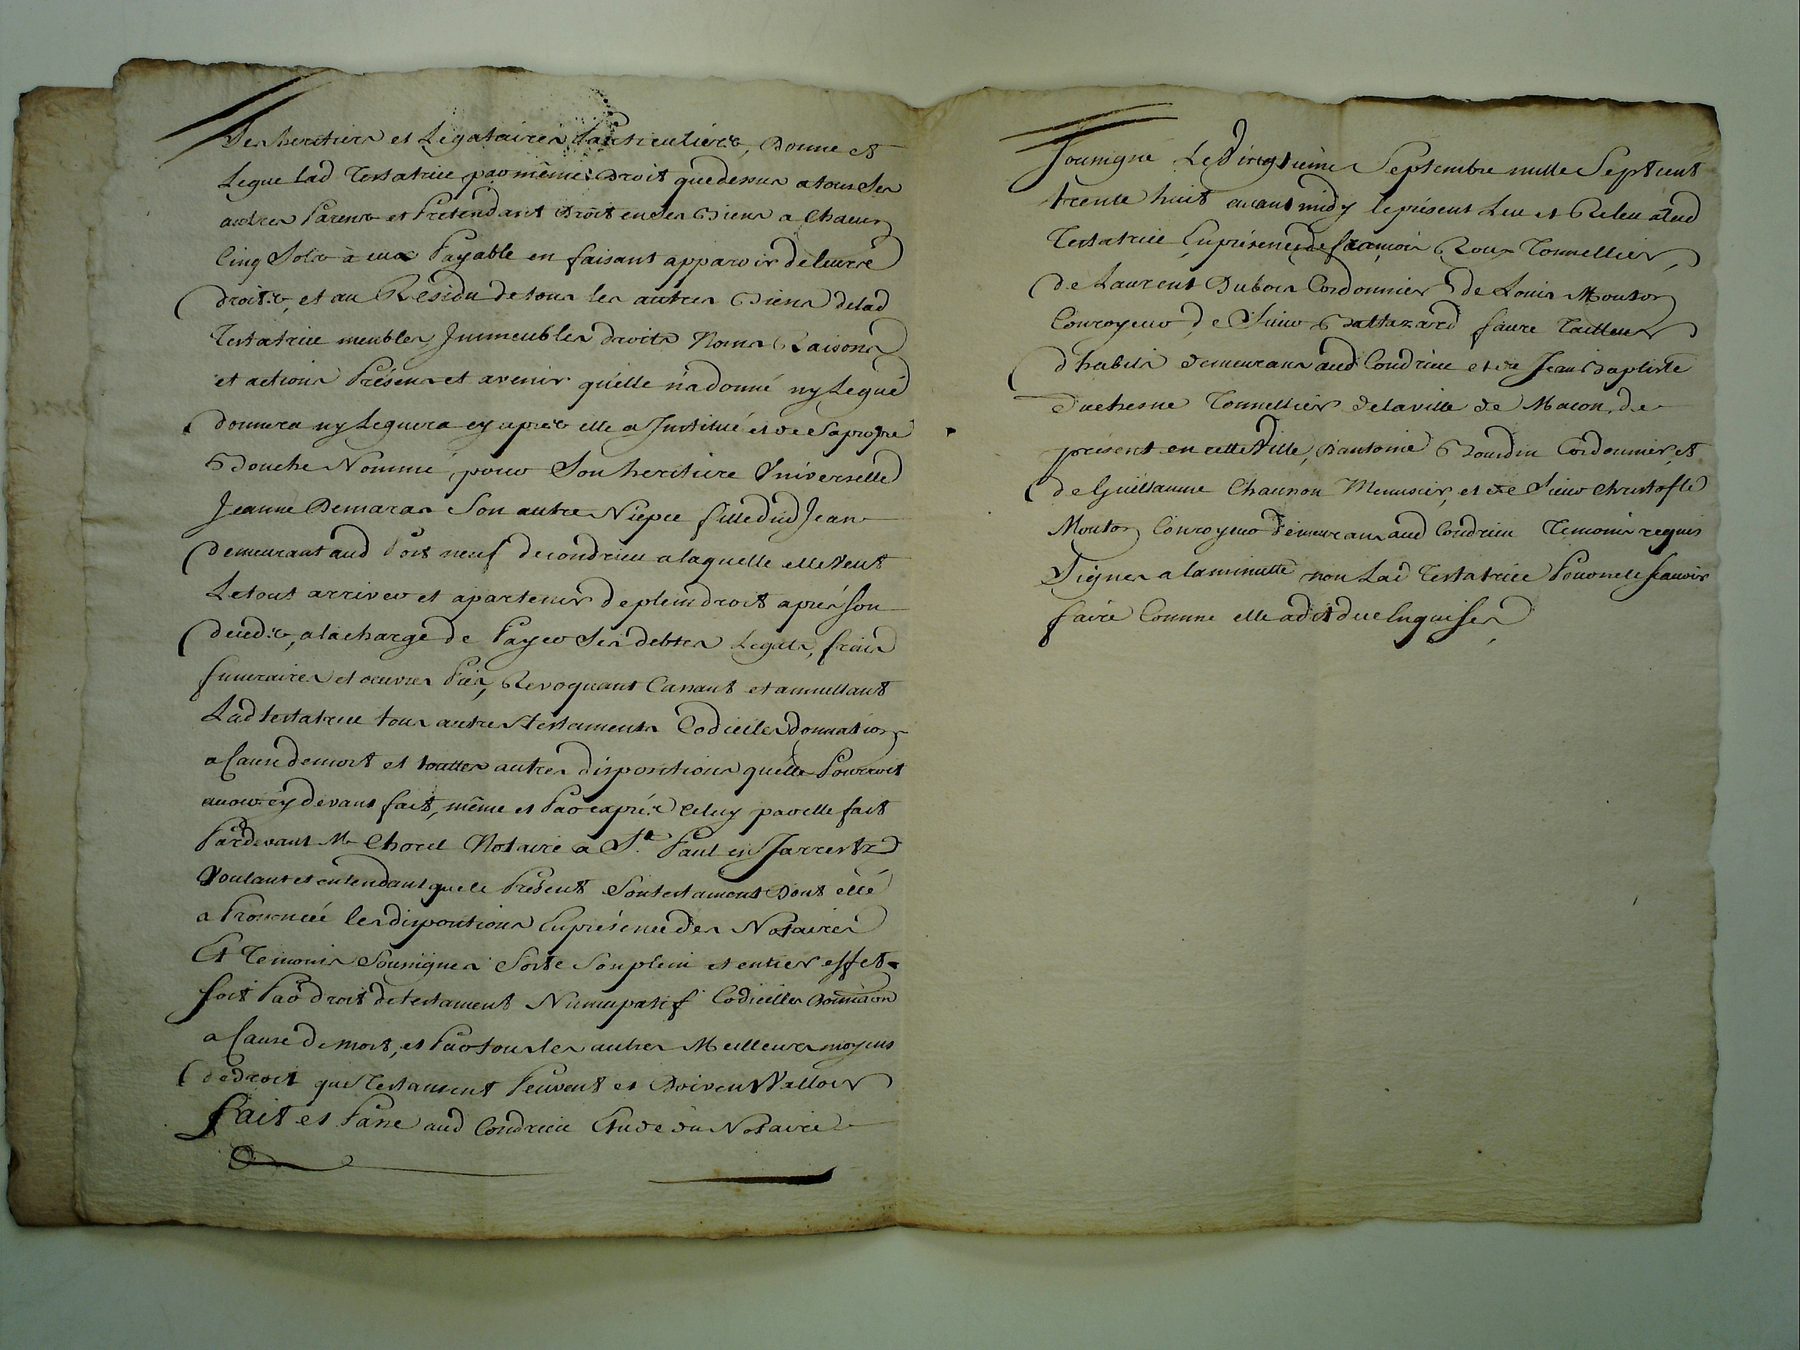 Ses heritiers et Legataires Particuliers, Donne et
Legue Lad Testatrice par même Droit que dessus a tous Ses
autres Parens et Pretendant Droit en Ses Biens a Chacun
Cinq Sols à eux Payable en faisant apparoir de leurs
droits, et au Residu de tous les autres Biens de lad
Testatrice meubles Immeubles droits Noms Raisons
et actions Présens et avenir qu'elle n'a donné ny Legué
donnera ny Leguera cy aprés elle a Institué et de Sa propre
Bouche Nommé, pour Son heritiere Universelle
Jeanne Demaras Son autre Niepce fille dud Jean
demeurant aud Port neuf de condrieu a laquelle elle veut
Le tout arriver et apartenir de plein droit aprés Son
decéds, a la charge de Payer Ses debtes Legats, frais
funeraires et oeuvres Pies, Revoquant Cassant et annullant
Lad testatrice tous autres testaments Codiciles donnation
a Cause de mort et touttes autres dispositions qu'elle Pourroit
avoir cy devant fait, même et Par exprés Celuy par elle fait
Pardevant Me Chorel Notaire a St. Paul en Jarrest
Voulant et entendant que le Présent Son testament Dont elle
a Prononcéé les dispositions En présence des Notaires
Et Temoins Soussignes Sorte Son plein et entier effet
soit Par droit de testament Nuncupatif Codicilles Donnaison
a Cause de mort, et Par tous les autres Meilleurs moyens
de droit que Testament Peuvent et Doivent Valloir
fait et Passé aud Condrieu Etude du Notaire
Sousigné Le Vingtieme Septembre mille Sept cent
trente huit avant midy le présent Leu et Releu a Lad
Testatrice En présence de françois Roux Tonnellier,
de Laurent Dubois Cordonnier de Louis Mouton
Conroyeur de Sieur Baltazard faure Tailleur
d'habits demeurans aud Condrieu et de Jean Baptiste
Duchesne Tonnellier de la ville de Macon, de
présent en cette Ville, D'antoine Bourdin Cordonnier, et
de Guillaume Channon Menusier, et de Sieur Christofle
Mouton Conroyeur Demeurans aud Condrieu Temoins requis
Signes a la minutte non Lad Testatrice Pour ne le scauoir
faire Comme elle a dit due Enquise